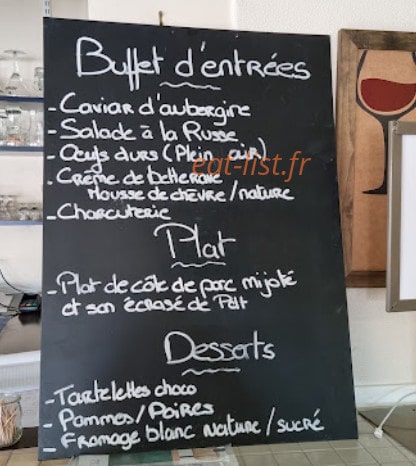 Buffet d'entrées
- Caviar d'aubergine
- Salade à la Russe
- Oeufs durs (Plein air)
eat-list.fr
- Crème de Betterave
Mousse de chèvre / nature
- Charcuterie
Plat
- Plat de côte de porc mijoté
et son écrasé de Pdt
Desserts
- Tartelettes choco
- Pommes / Poires
- Fromage blanc Nature / sucré